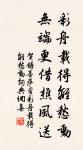 彩舟載得離愁動
無端更借樵風送
賀鑄菩薩蠻彩舟載得
離愁動詞典網集